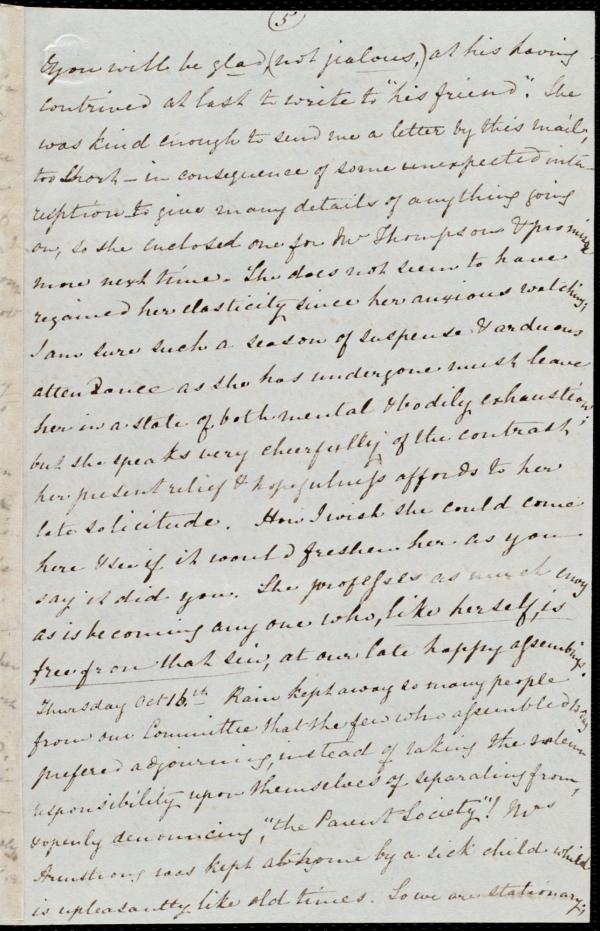 (5)
& you will be glad, (not jealous,) at his having
contrived at last to write to "his friend". She
was kind enough to send me a letter by this mail,
too short - in consequence of some unexpected inter-
ruption to give many details of anything going
on, so she enclosed one for Mr Thompson & promises
more next time. She does not seem to have
regained her elasticity since her anxious watching;
I am sure such a season of suspense & arduous
attendance as she has undergone must leave
her in a state of both mental & bodily exhaustion;
but she speaks very cheerfully of the contrast
her present relief & hopefulness affords to her
late solicitude. How I wish she could come
here & see if it would freshen her as you
say it did you. She professes as much envy
as is becoming any one who, like herself, is
free from that sin, at our late happy assemblings.
Thursday Oct 16th. Rain kept away so many people
from our Committee that the few who assembled
prefered adjourning, instead of taking the solemn
responsibility upon themselves of separating from,
& openly denouncing, "the Parent Society"! Mrs
Armstrong was kept at home by a sick child which
is unpleasantly like old times. So we are stationary;